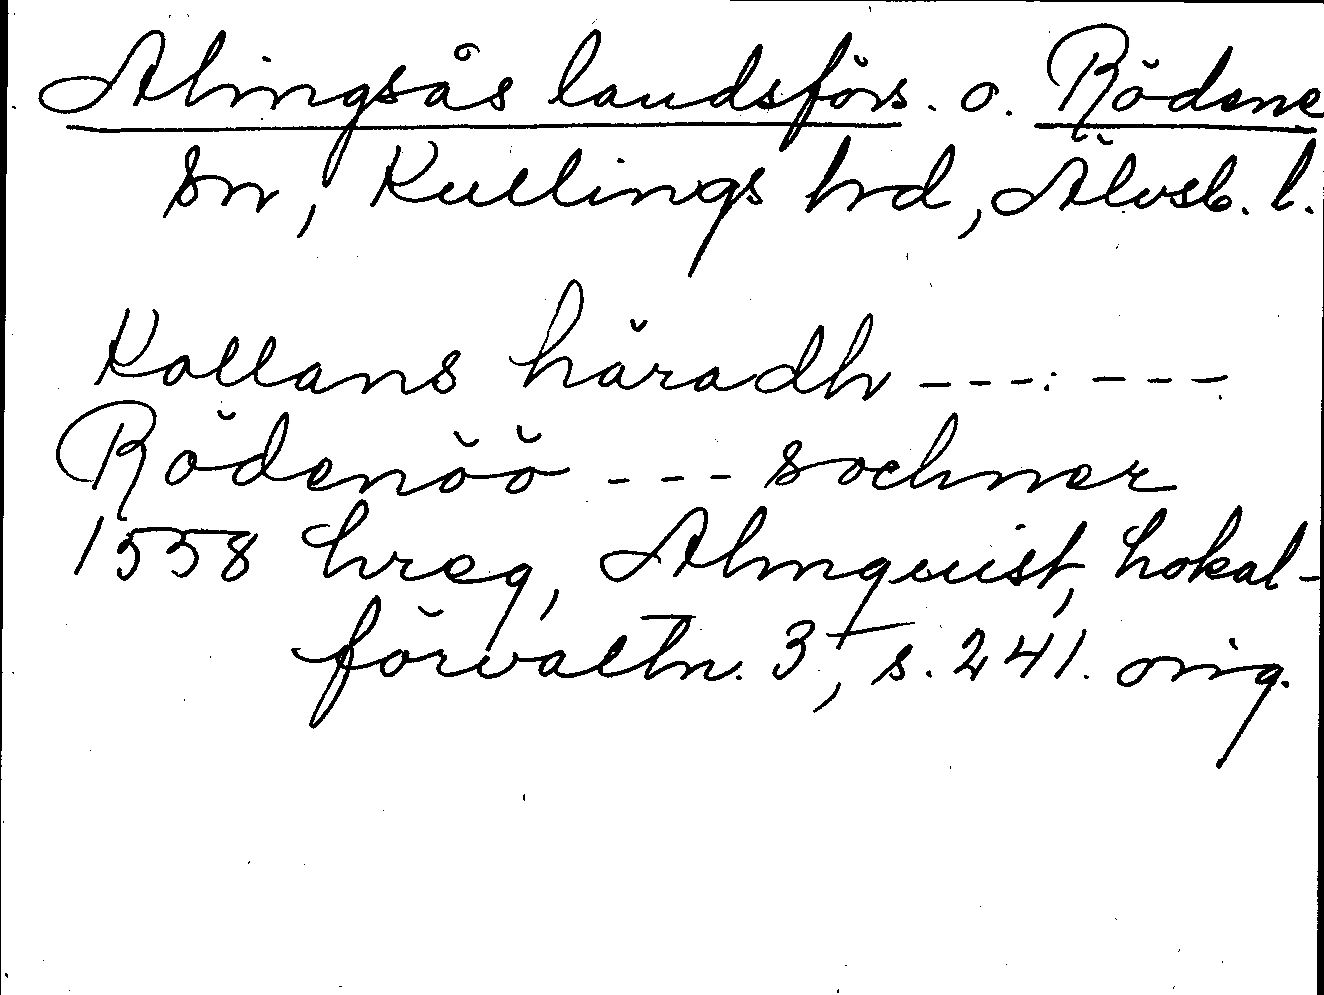 Alingsås landsförs. o. Rödene
sn, Kullings hrd, Älvsb. l.
Kollans häradh ---:---
Rödenöö --- sochner
1558 hreg, Almquist, Lokal-
förvaltn. 3, s. 241. orig.